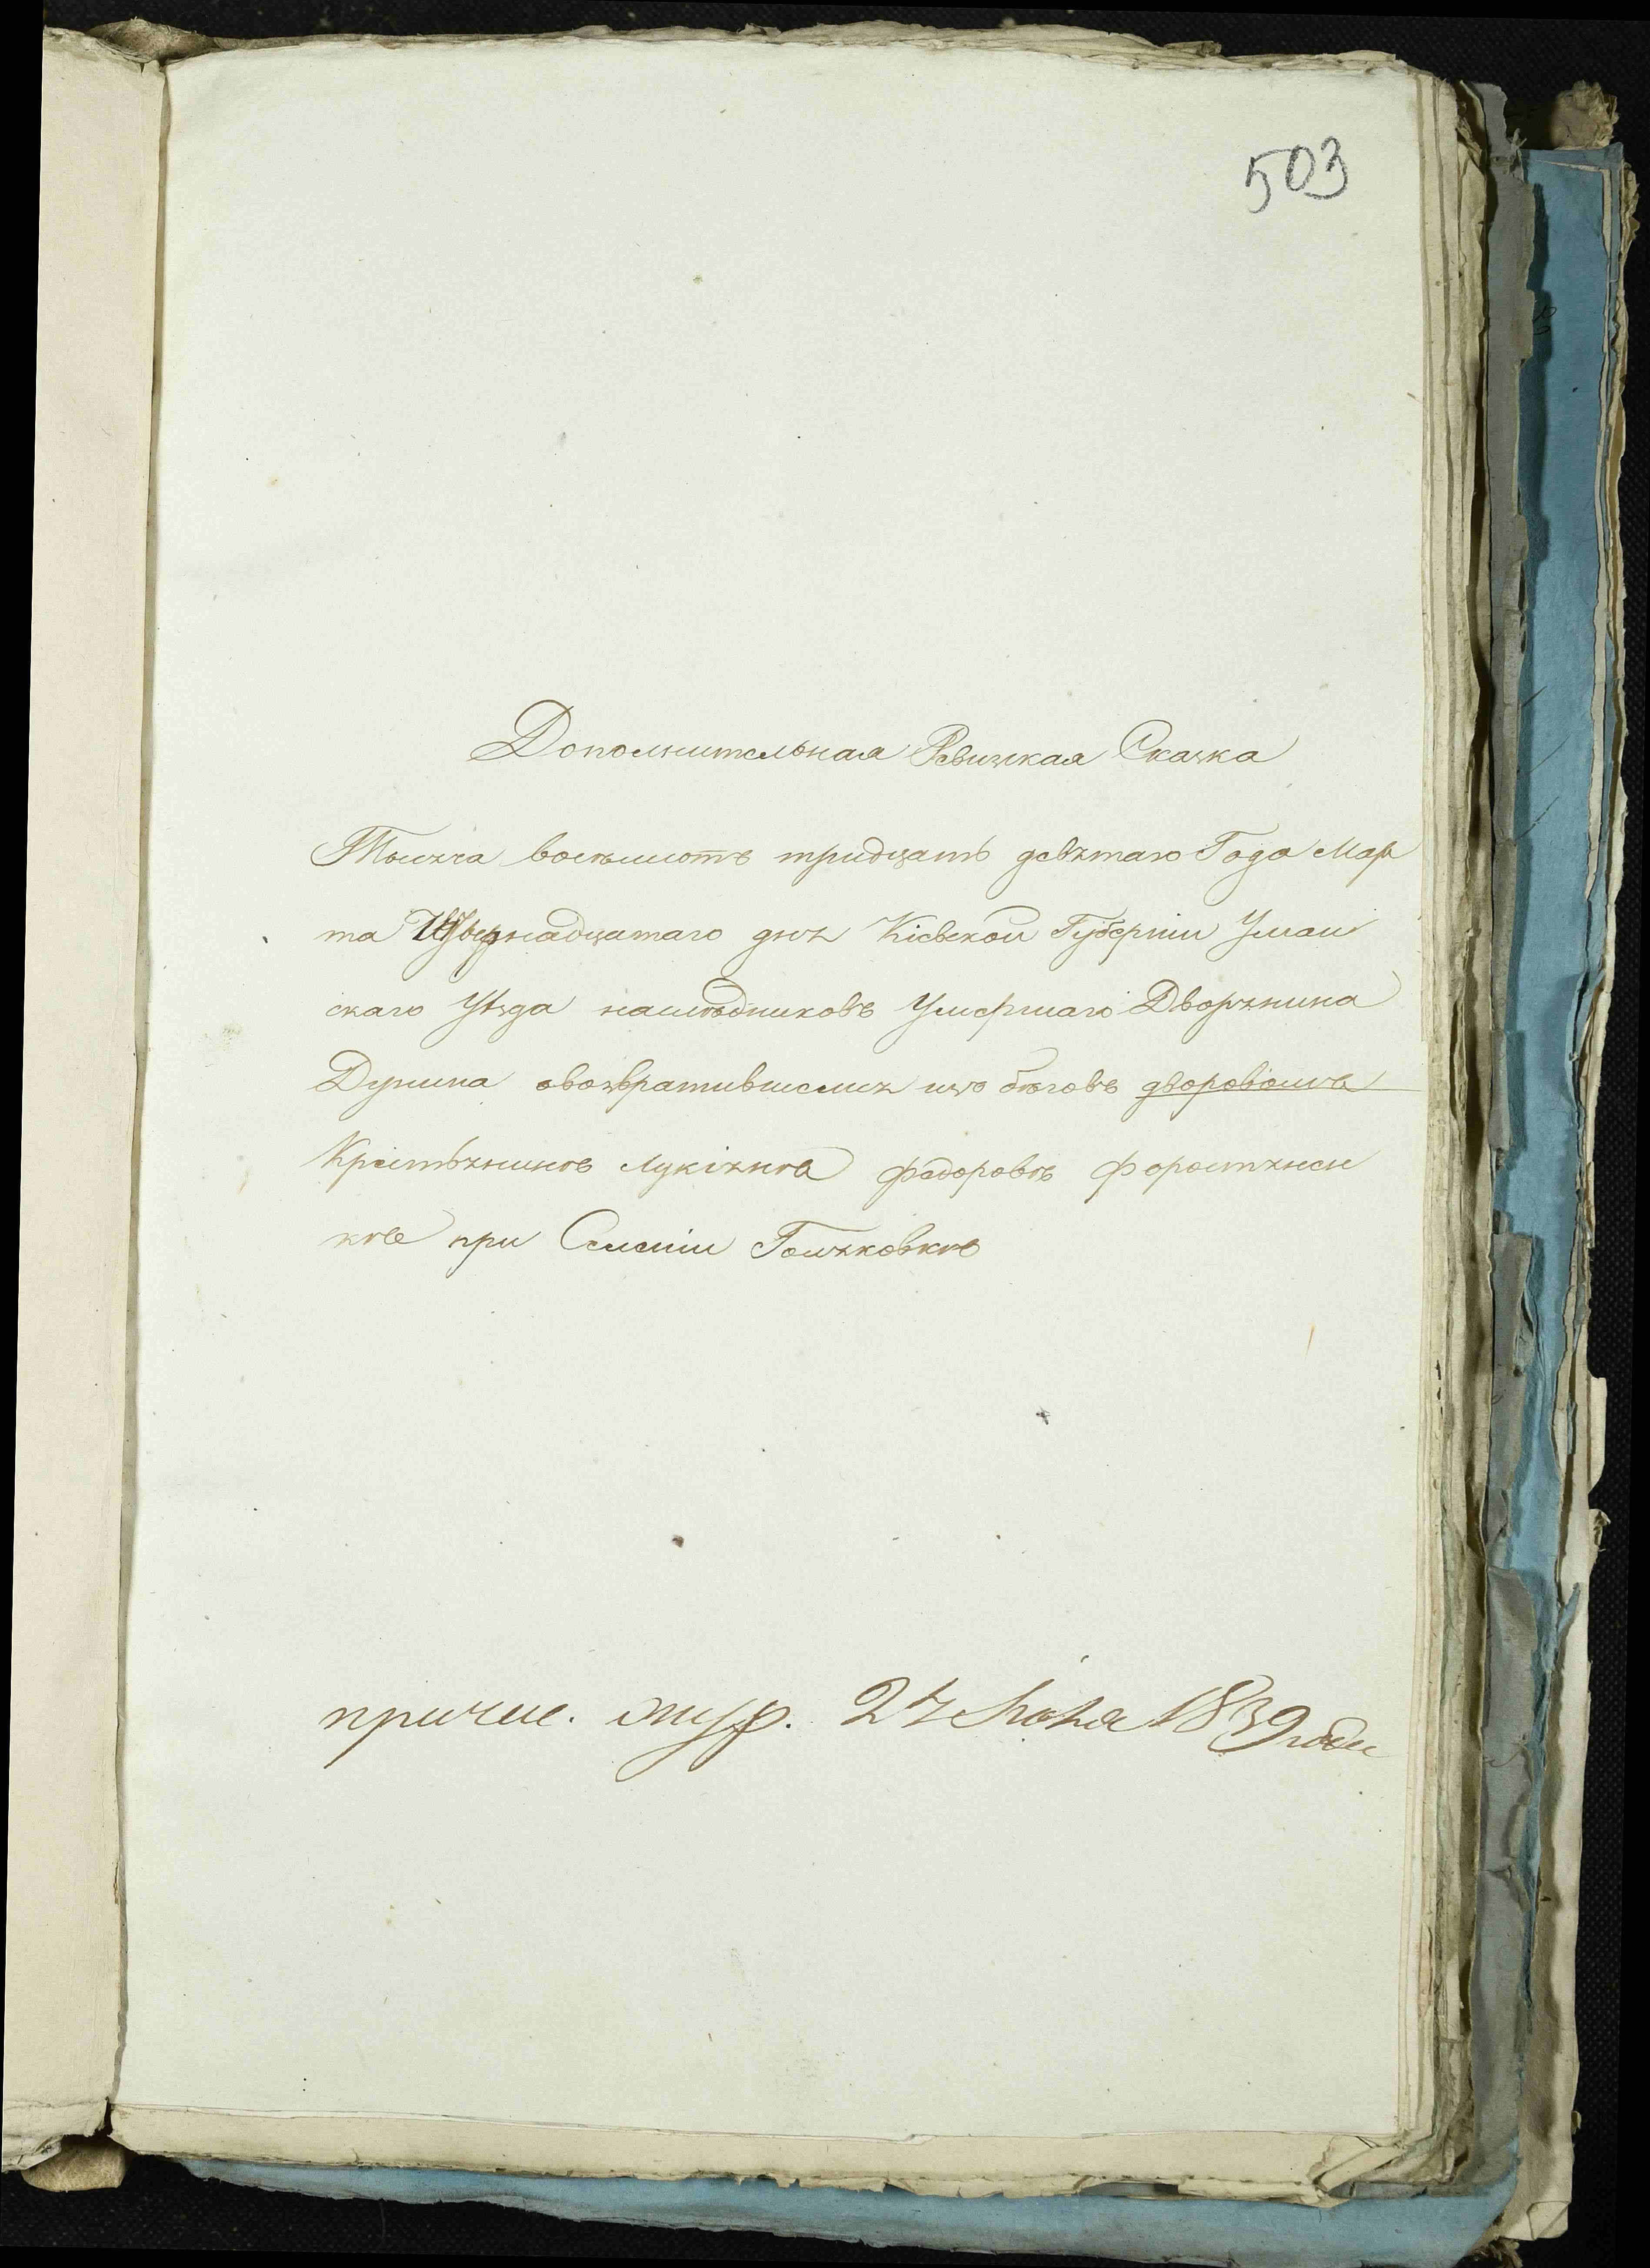 503
Дополнительная Ревизкая Сказка
Тысяча восемьсотъ тридцать девятаго Года Мар
та надцатаго дня Кіевской Губерніи Уман
скаго Уѣзда наслѣдниковъ Умершаго Дворянина
Дунина овозвратившемся изъ бѣговъ дворовомъ
Крестьянинѣ Лукіянѣ Федоровѣ Форостянен
кѣ при Селеніи Гомяковкѣ
причис. жур. 27 1839 года